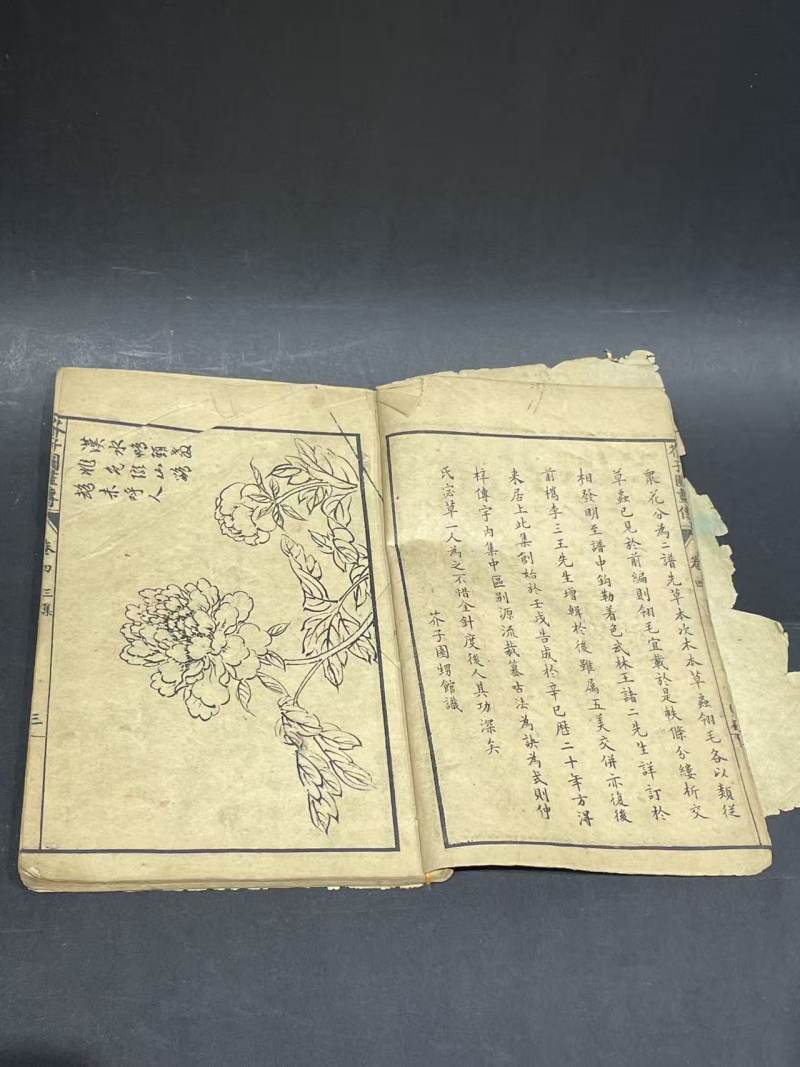 芥子園畫傳 卷四
眾花分為二譜先草本次木本草蟲翎毛各以類從
草蟲已見於前編則翎毛宜載於是軼條分縷析交
相發明至譜中鈎勒着色武林王諸二先生詳訂於
前檇李三王先生增輯於後雖属五美交併亦復後
来居上此集創始於壬戌告成於辛巳歷二十年方得
梓傳宇内集中區别源流裁纂古法為訣為式則仲
氏宓草一人為之不惜金針度後人其功深矣
芥子園甥館識
頭山人
芥子園畫傳 卷四 三集 三